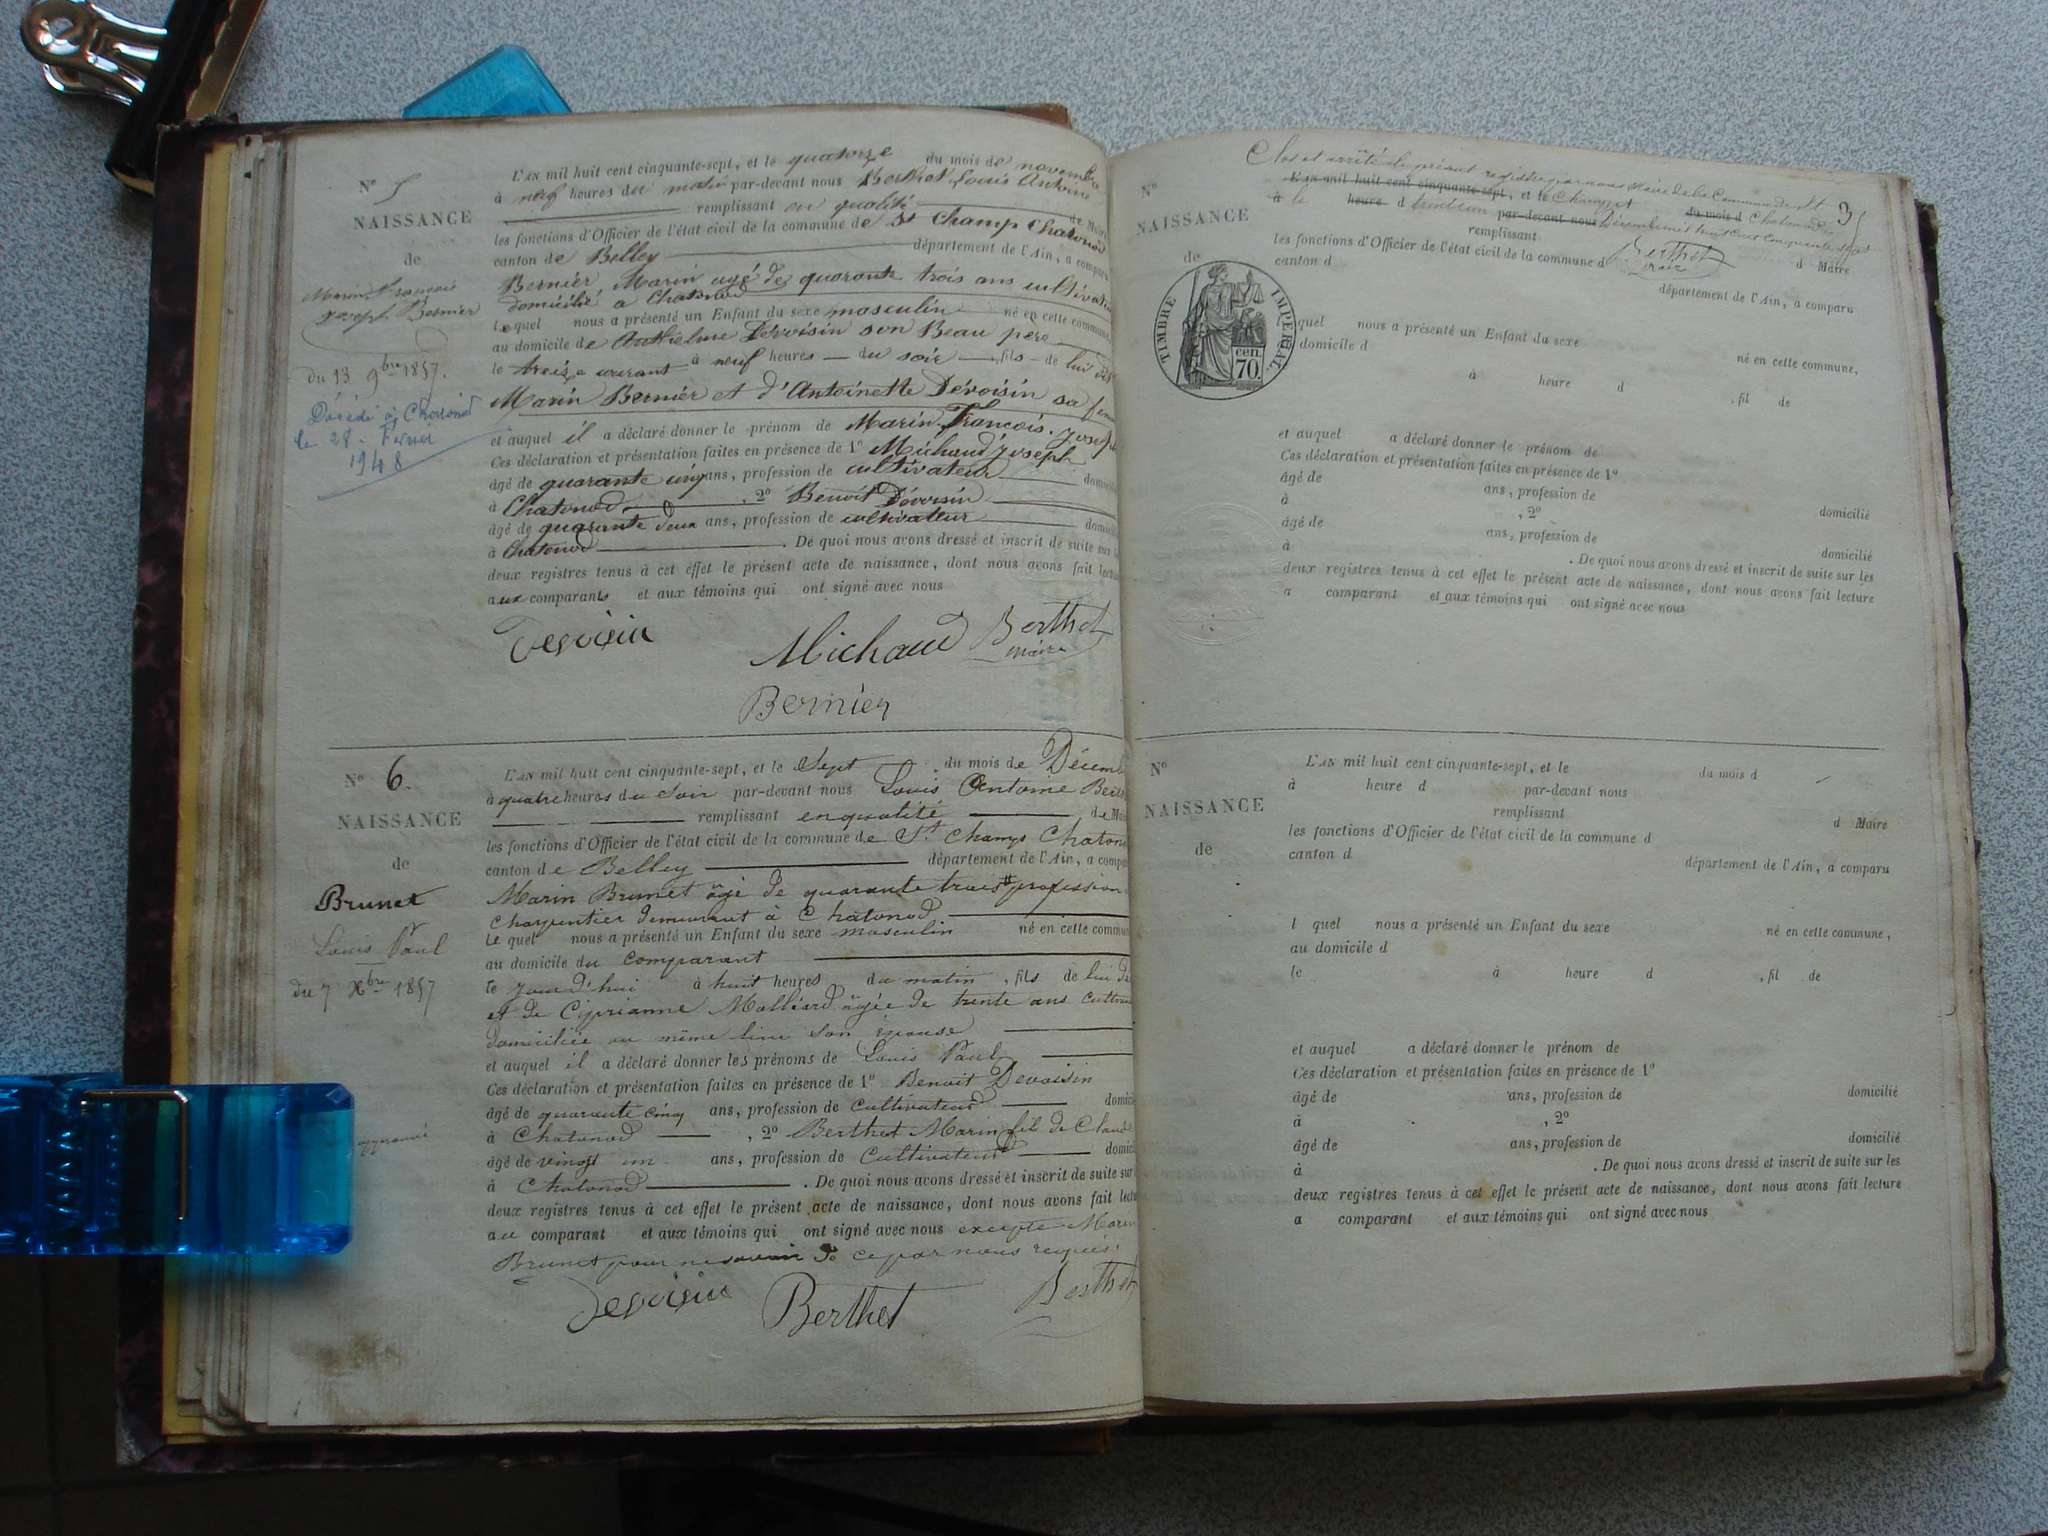 N° 5
NAISSANCE
de
Marin, François
Joseph Bernier
du 13 9bre 1857.
Décédé à Chatonod
le 28 Fevrier
1948
L'AN mil huit cent cinquante-sept, et le quatorze du mois de novembre
à neuf heures du matin par-devant nous Berthet Louis Antoine
remplissant en qualité de Maire
les fonctions d'Officier de l'état civil de la commune de St Champ Chatonod
canton de Belley département de l'Ain, a comparu
Bernier, Marin agé de quarante trois ans cultivateur
domicilié a Chatonod
lequel nous a présenté un Enfant du sexe masculin né en cette commune
au domicile de Anthelme Dévoisin son Beau père
le treize courant à neuf heures du soir, fils de lui dit
Marin Bernier et d'Antoinette Dévoisin sa femme
et auquel il a déclaré donner le prénom de Marin, François, Joseph
Ces déclaration et présentation faites en présence de 1° Michaud Joseph
âgé de quarante cinq ans, profession de cultivateur domicilié
à Chatonod, 2° Benoit Dévoisin
âgé de quarante deux ans, profession de cultivateur domicilié
à Chatonod. De quoi nous avons dressé et inscrit de suite sur les
deux registres tenus à cet effet le présent acte de naissance, dont nous avons fait lecture
aux comparants et aux témoins qui ont signé avec nous
Devoisin Michaud Berthet
maire
Bernier
N° 6.
NAISSANCE
de
Brunet
Louis Paul
du 7 Xbre 1857
L'AN mil huit cent cinquante-sept, et le Sept du mois de Décemb
à quatre heures du soir par-devant nous Louis Antoine Berth
remplissant en qualité de Mair
les fonctions d'Officier de l'état civil de la commune de St Champ Chatono
canton de Belley département de l'Ain, a compa
Marin Brunet âgé de quarante trois profession
Charpentier demeurant à Chatonod
lequel nous a présenté un Enfant du sexe masculin né en cette commun
au domicile du comparant
le jour d'hui à huit heures du matin, fils de lui dit
et de Ciprianne Molliard âgée de trente ans cultiva
domiciliée au même lieu son épouse
et auquel il a déclaré donner les prénoms de Louis Paul
Ces déclaration et présentation faites en présence de 1° Benoit Devoisin
âgé de quarante cinq ans, profession de Cultivateur domici
à Chatonod, 2° Berthet Marin fils de Claude
âgé de vingt un ans, profession de Cultivateur domici
à Chatonod. De quoi nous avons dressé et inscrit de suite sur
deux registres tenus à cet effet le présent acte de naissance, dont nous avons fait lectu
au comparant et aux témoins qui ont signé avec nous excepté Marin
Brunet pour ne savoir de ce par nous requis.
Devoisin Berthet Berthet
Clos et arrêté le présent registre par nous Maire de la Commune de St
N° L'AN mil huit cent cinquante-sept, et le Champ du mois d Chatonod 35
à le heure d trente un par-devant nous Décembre mil huit cent cinquante sept
NAISSANCE
de
remplissant d Maire
les fonctions d'Officier de l'état civil de la commune d Berthet
maire
canton d département de l'Ain, a comparu
TIMBRE IMPERIAL
70 cen.
quel nous a présenté un Enfant du sexe né en cette commune,
domicile d
à heure d, fil de
et auquel a déclaré donner le prénom de
Ces déclaration et présentation faites en présence de 1°
âgé de ans, profession de domicilié
à, 2°
âgé de ans, profession de domicilié
à. De quoi nous avons dressé et inscrit de suite sur les
deux registres tenus à cet effet le présent acte de naissance, dont nous avons fait lecture
a comparant et aux témoins qui ont signé avec nous
N°
NAISSANCE
de
L'AN mil huit cent cinquante-sept, et le du mois d
à heure d par-devant nous
remplissant d Maire
les fonctions d'Officier de l'état civil de la commune d
canton d département de l'Ain, a comparu
l quel nous a présenté un Enfant du sexe né en cette commune,
au domicile d
le à heure d, fil de
et auquel a déclaré donner le prénom de
Ces déclaration et présentation faites en présence de 1°
âgé de ans, profession de domicilié
à, 2°
âgé de ans, profession de domicilié
à. De quoi nous avons dressé et inscrit de suite sur les
deux registres tenus à cet effet le présent acte de naissance, dont nous avons fait lecture
a comparant et aux témoins qui ont signé avec nous